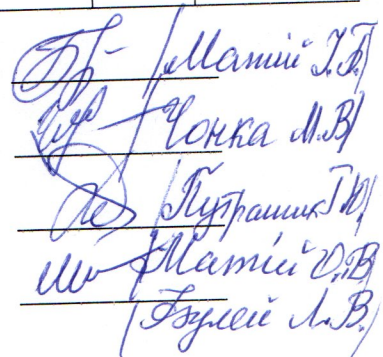 /Матій І.Б./
/Чонка М.В/
/Путрашик Г.Ю/
/Матій О.В/
/Булей Л.В./